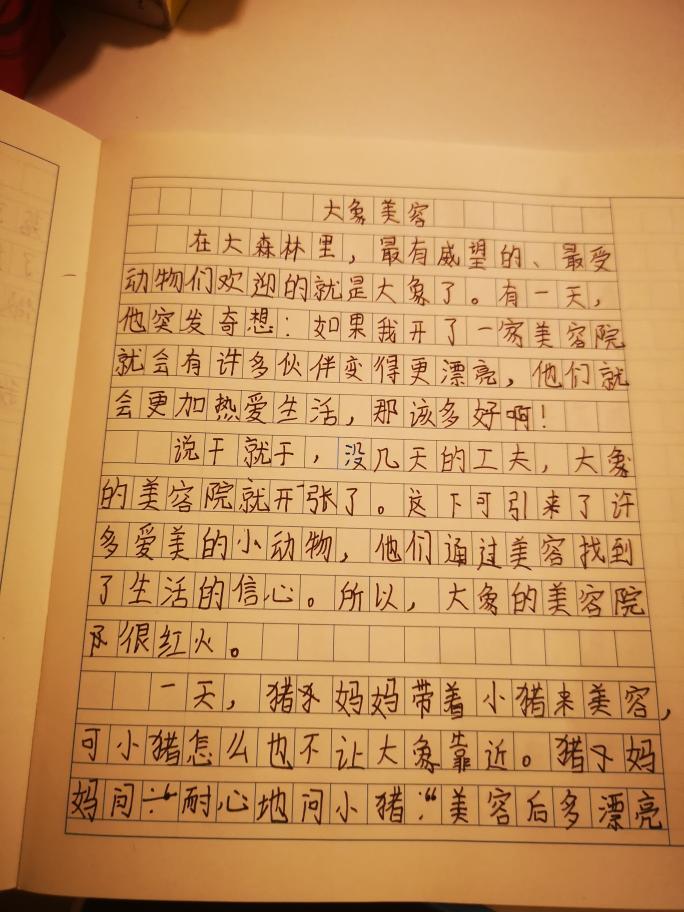 大象美容
在大森林里，最有威望的、最受
动物们欢迎的就是大象了。有一天，
他突发奇想：如果我开了一家美容院
就会有许多伙伴变得更漂亮，他们就
会更加热爱生活，那该多好啊！
说干就干，没几天的工夫，大象
的美容院就开张了。这下可引来了许
多爱美的小动物，他们通过美容找到
了生活的信心。所以，大象的美容院
很红火。
一天，猪妈妈带着小猪来美容，
可小猪怎么也不让大象靠近。猪妈
妈问：“耐心地问小猪：“美容后多漂亮